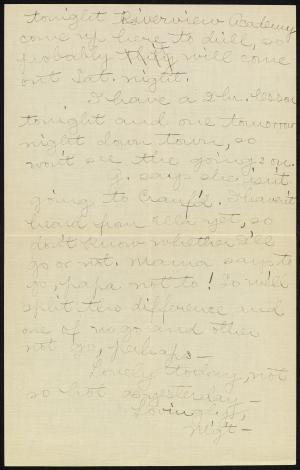 tonight Riverview Academy
come up here to drill, so
probably they will come
out Sat. night.
I have a 2 hr. lesson
tonight and one tomorrow
night down town, so
won't see the goings on.
G. says she isn't
going to Cranf'd. I haven't
heard from Ella yet, so
don't know whether I'll
go or not. Mama says to
go, papa not to! So will
split the difference and
one of us go and other
not go, perhaps—
Lovely today, not
so hot as yesterday—
Lovingly,